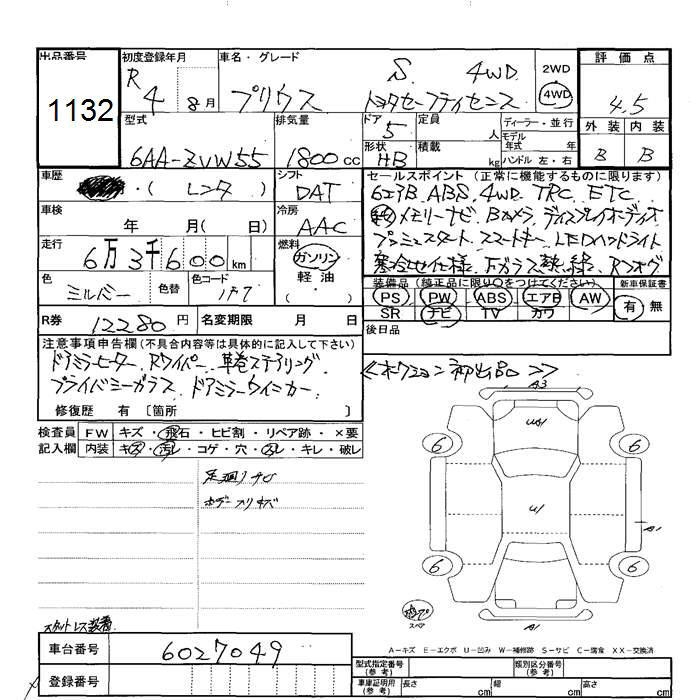 出品番号
1132
初度登録年月
R 4 年 8 月
車名・グレード
S 4WD
プリウス トヨタセーフティセンス
2WD
4WD
評価点
4.5
外装 内装
B B
型式
6AA-ZVW55
排気量
1800 cc
ドア 5
定員 人
形状 HB
積載 kg
ディーラー・並行
モデル年式 年
ハンドル 左・右
車歴
・( レンタ )
シフト
DAT
車検
年 月( 日)
冷房
AAC
走行
6万3千600 km
燃料
ガソリン
軽油
色
シルバー
色替
色コード
1F7
R券 12280 円
名変期限 月 日
セールスポイント (正常に機能するものに限ります)
6エアB ABS. 4WD TRC ETC
純メモリーナビ、Bカメラ、ディスプレイオーディオ
プッシュスタート スマートキー LEDヘッドライト
寒冷地仕様、Fガラス熱線、Rフォグ
装備品(純正品に限り○をつけてください)
新車保証書
PS PW ABS エアB AW
SR ナビ TV カワ
有 無
後日品
注意事項申告欄(不具合内容等は具体的に記入して下さい)
ドアミラーヒーター、Rワイパー、革巻ステアリング
プライバシーガラス、ドアミラーウィンカー
修復歴 有 〔箇所 〕
≪オークション初出品≫
検査員記入欄
FW キズ・飛石・ヒビ割・リペア跡・×要
内装 キズ・汚レ・コゲ・穴・スレ・キレ・破レ
足廻りサビ
ボデースリキズ
A3
U1
A1
6 6
6 6
応プ
スペア
A1
スタットレス装着
A-キズ E-エクボ U-凹み W-補修跡 S-サビ C-腐食 XX-交換済
車台番号 6027049
登録番号
型式指定番号(参考)
類別区分番号(参考)
車庫証明用(参考)
長さ cm
幅 cm
高さ cm